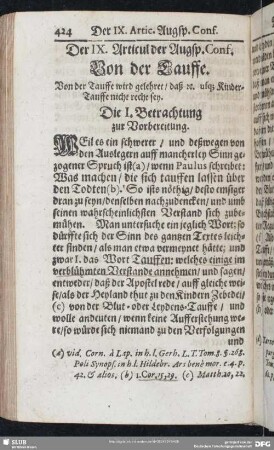 424 Der IX. Artic. Augsp. Conf.
Der IX. Articul der Augsp. Conf.
Von der Tauffe.
Von der Tauffe wird gelehret / daß ꝛc. biß Kinder-
Tauffe nicht recht sey.
Die I. Betrachtung
zur Vorbereitung.
WEil es ein schwerer / und deßwegen von
den Auslegern auff mancherley Sinn ge-
zogener Spruch ist (a) / wenn Paulus schreibet:
Was machen / die sich tauffen lassen über
den Todten (b). So ists nöthig / desto emsiger
dran zu seyn / denselben nachzudencken / und umb
seinen wahrscheinlichsten Verstand sich zube-
mühen. Man untersuche ein jeglich Wort: so
dürffte sich der Sinn des gantzen Textes leich-
ter finden / als man etwa vermeynet hätte; und
zwar I. das Wort Tauffen: welches einige im
verblühmten Verstande annehmen / und sagen /
entweder / daß der Apostel rede / auff gleiche wei-
se / als der Heyland thut zu den Kindern Zebedei /
(c) von der Blut- oder Leydens-Tauffe / und
wolle andeuten / wenn keine Aufferstehung we-
re / so würde sich niemand zu den Verfolgungen
und
(a) vid. Corn. à Lap. in h. l. Gerh. L. T. Tom. 8. §. 268.
Poli Synops. in h. l. Hildebr. Ars benè mor. c. 4. p.
42. & alios, (b) 1. Cor. 15, 29. (c) Matth. 20, 22.
SLUB
DFG